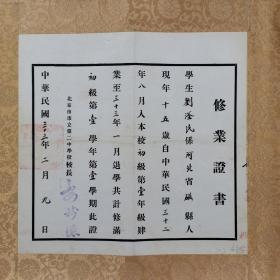 修業證書
學生劉澄民係河北省磁縣人
現年十五歲自中華民國三十二
年八月入本校初級第壹年級肄
業至三十三年一月退學共計修滿
初級第壹學年第壹學期此證
北京市市立第二中學校校長
中華民國三十三年二月九日